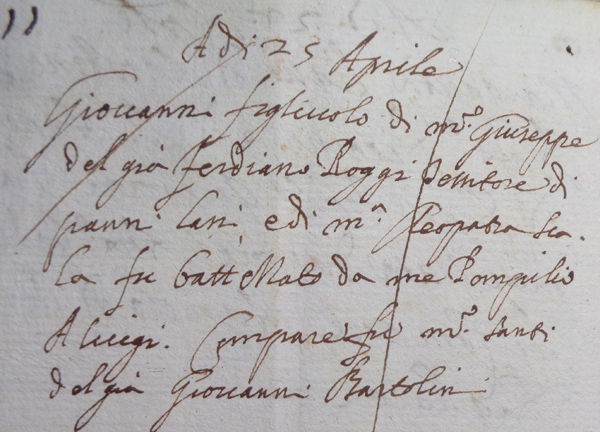 Adi 25 Aprile
Giovanni figliuolo di m.º Giuseppe
del già Ferdiano Poggi Tessitore di
panni lani, e di m.ª Cleopatra sua.
la fu battezzato da me Pompilio
Aluigi. Compare fu m.º Santi
del già Giovanni Bartolini